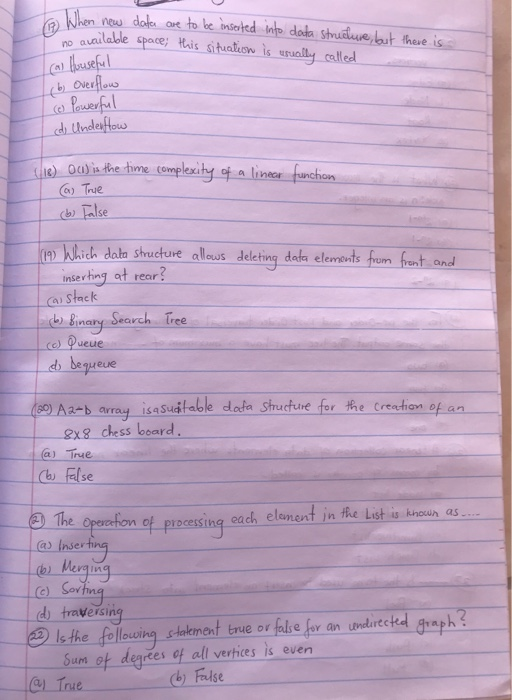 (17) When new data are to be inserted into data structure, but there is
no available space; this situation is usually called
(a) Houseful
(b) Overflow
(c) Powerful
(d) Underflow
(18) O(1) is the time complexity of a linear function
(a) True
(b) False
(19) Which data structure allows deleting data elements from front and
inserting at rear?
(a) Stack
(b) Binary Search Tree
(c) Queue
d) Dequeue
(20) A 2-D array is a suitable data structure for the creation of an
8x8 chess board.
(a) True
(b) False
(21) The operation of processing each element in the List is known as ....
(a) Inserting
(b) Merging
(c) Sorting
(d) traversing
(22) Is the following statement true or false for an undirected graph?
Sum of degrees of all vertices is even
(a) True (b) False